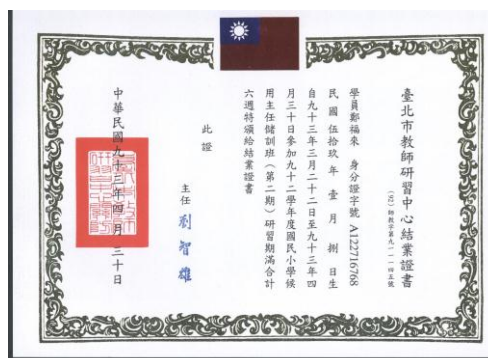 臺北市教師研習中心結業證書
(92)師教字第九一一一四五號
學員鄭福來 身分證字號 A122716768
民國伍拾玖年壹月捌日生
自九十三年三月二十二日至九十三年四
月三十日參加九十二學年度國民小學候
用主任儲訓班(第二期)研習期滿合計
六週特頒給結業證書
此證
主任 劉智雄
中華民國九十三年四月三十日